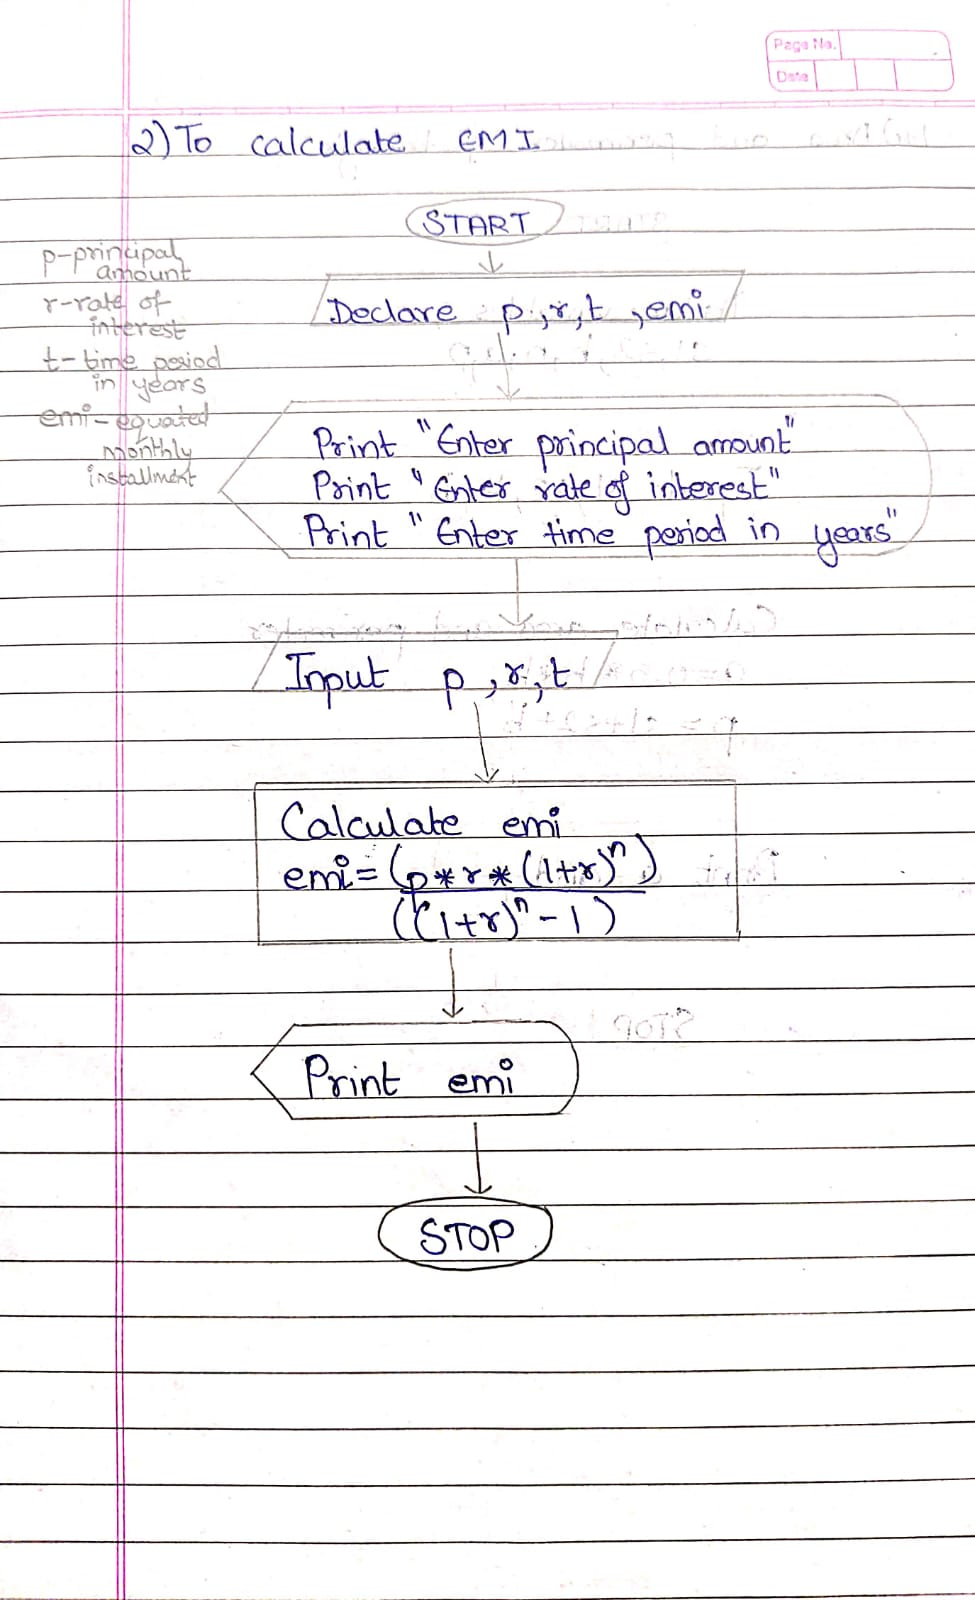 Page No.
Date
2) To calculate EMI
START
p-principal
amount
r-rate of
interest
t-time period
in years
emi-equated
monthly
installment
Declare p,r,t,emi
Print "Enter principal amount"
Print "Enter rate of interest"
Print "Enter time period in years"
Input p,r,t
Calculate emi
emi=(p*r*(1+r)ⁿ)
((1+r)ⁿ-1)
Print emi
STOP